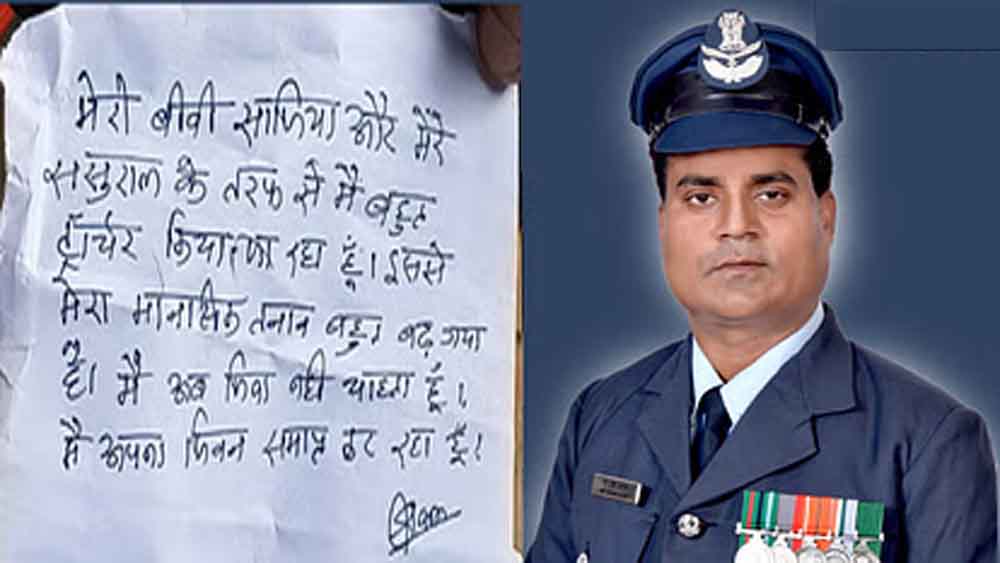 मेरी बीवी साफिया और मेरे
ससुराल के तरफ से मै बहुत
ट्रॉचेर किया जा रहा हूँ। इससे
मेरा मानसिक तनाव बहुत बढ़ गया
है। मै अब जिना नही चाहता हूँ।
मै अपना जिवन समाप्त कर रहा हूँ।